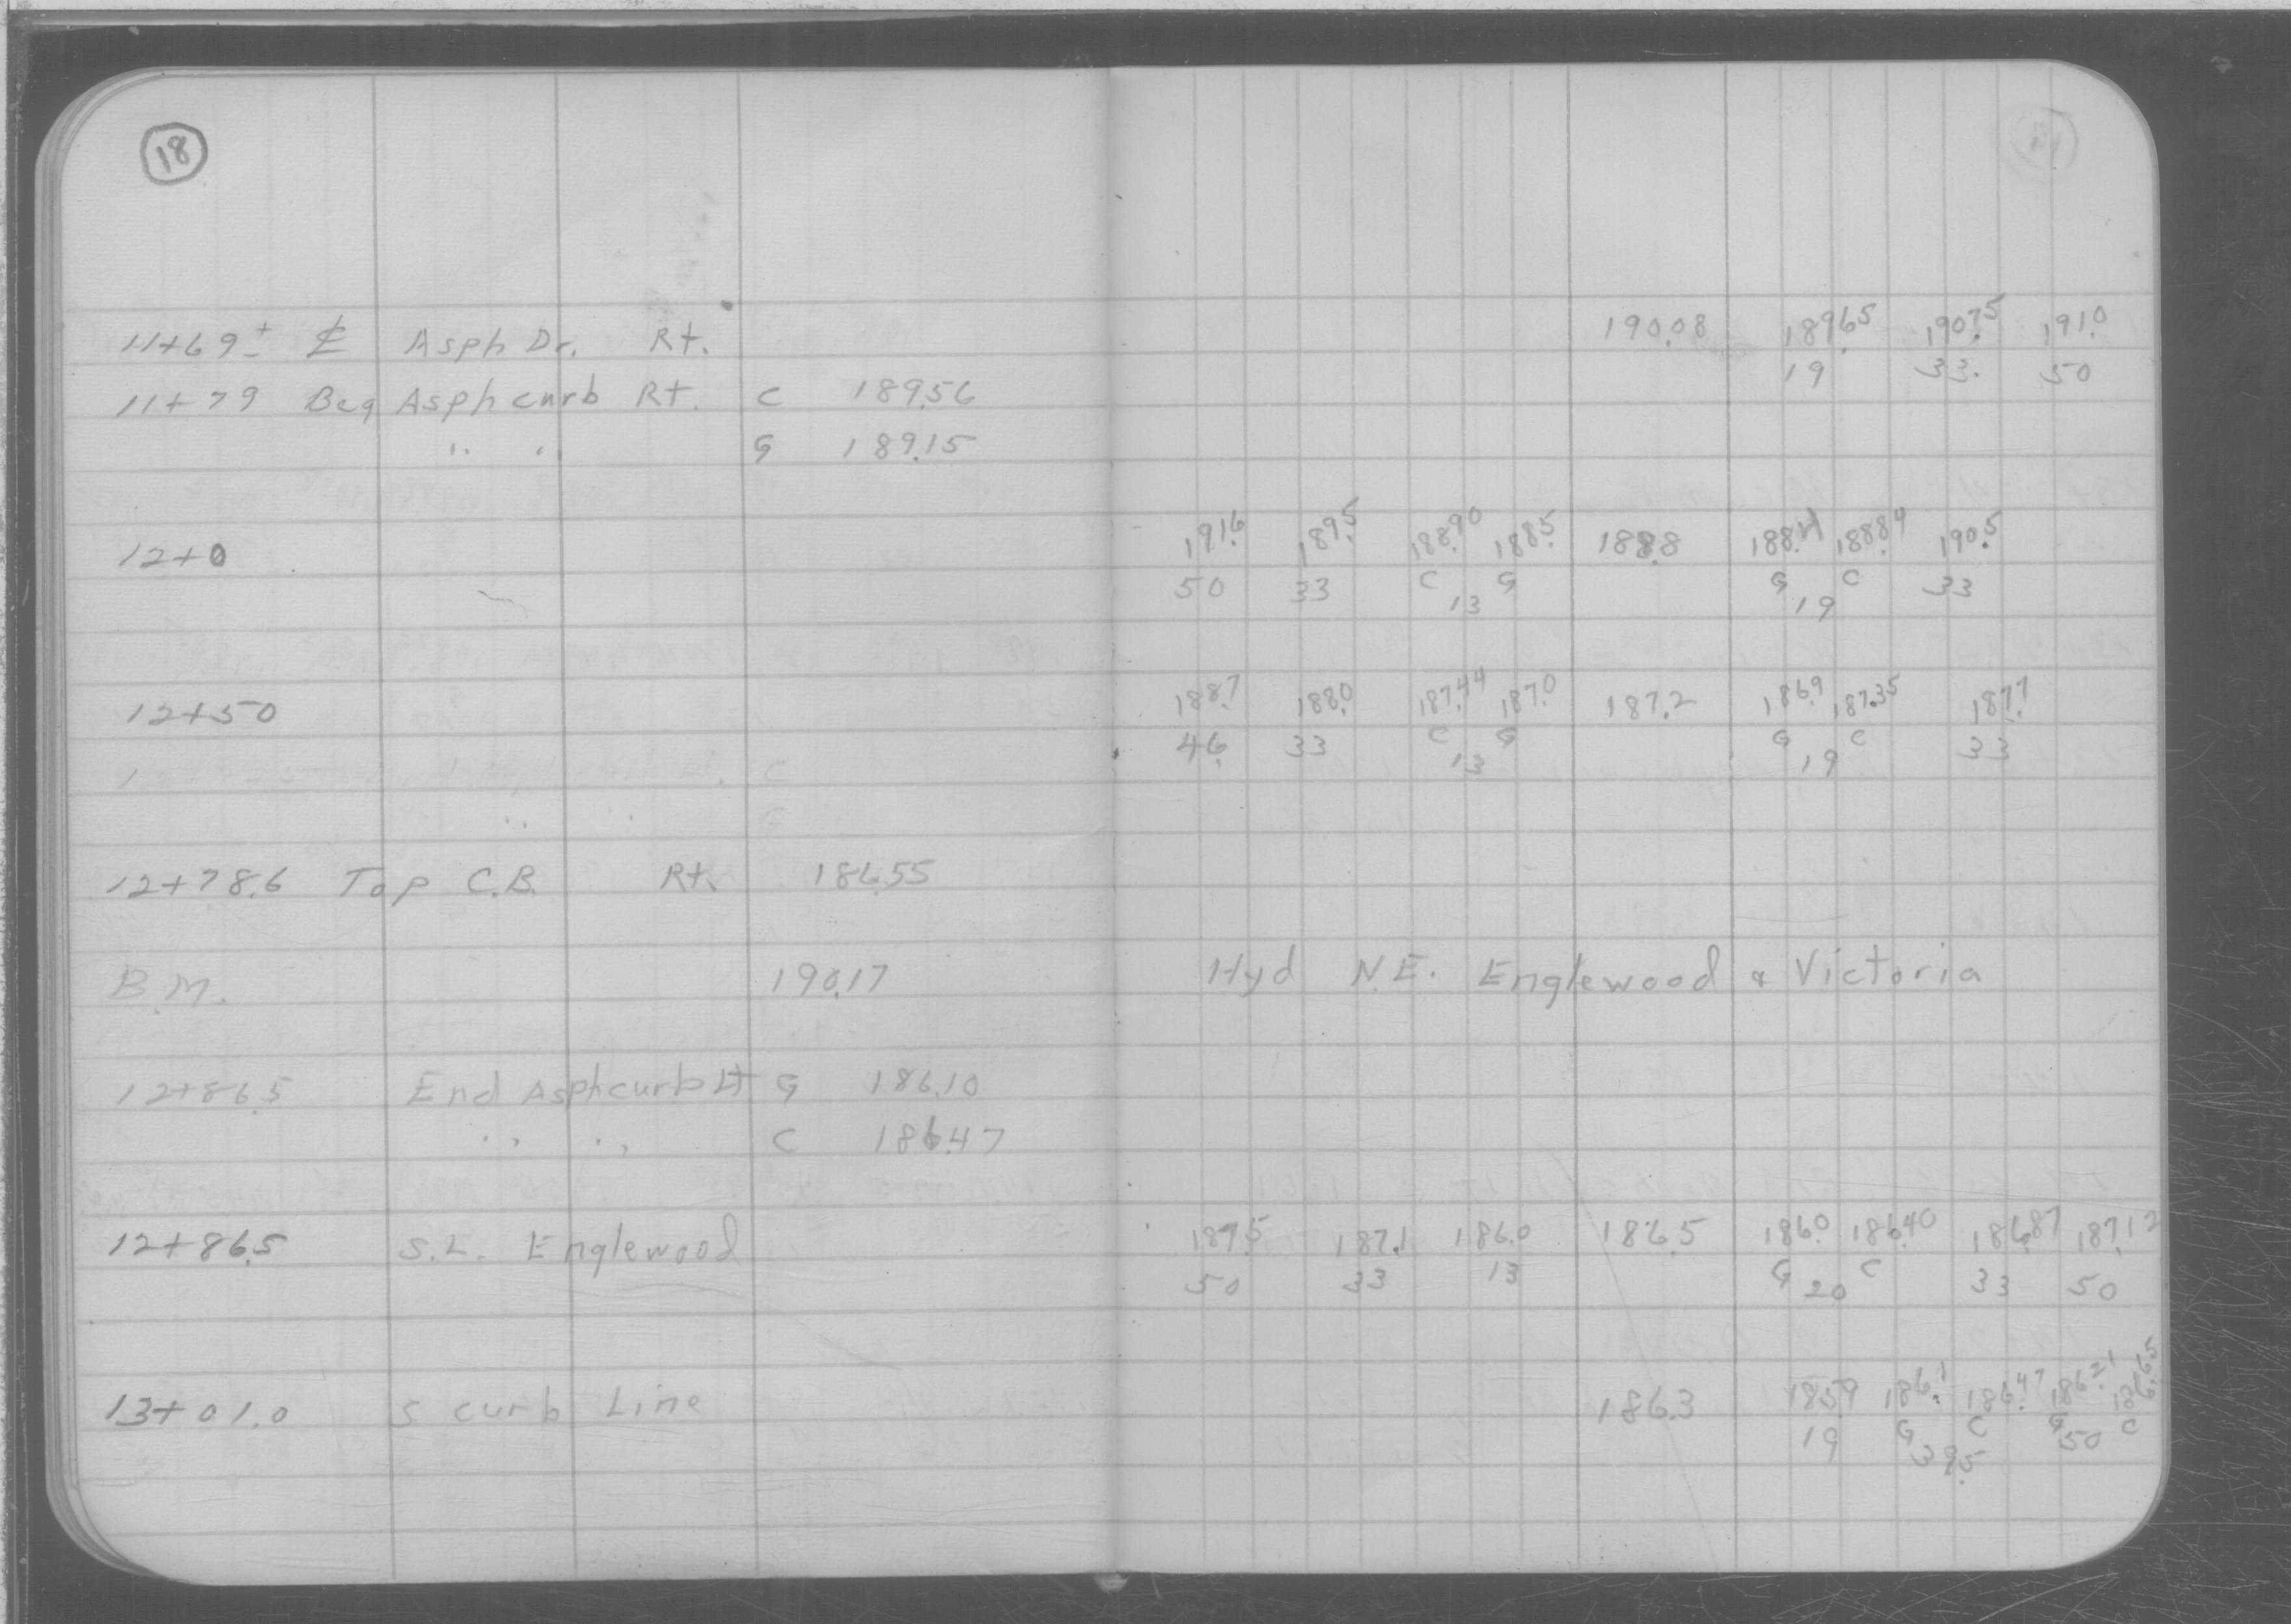 18
11+69± ⅊ Asph Dr. Rt. 190.08 189.65 190.75 191.0
19 33. 50
11+79 Beg Asph curb Rt. C 189.56
" " G 189.15
12+0 191.6 189.5 188.90 188.5 188.8 188.4 188.84 190.5
50 33 C 13 G G 19 C 33
12+50 188.7 188.0 187.44 187.0 187.2 186.9 187.35 187.7
46 33 C 13 G G 19 C 33
12+78.6 Top C.B. Rt. 186.55
B.M. 190.17 Hyd N.E. Englewood & Victoria
12+86.5 End Asph curb Lt G 186.10
" " C 186.47
12+86.5 S.L. Englewood 187.5 187.1 186.0 186.5 186.0 186.40 186.87 187.12
50 33 13 G 20 C 33 50
13+01.0 S curb Line 186.3 185.9 186.1 186.47 186.21 186.65
19 G 39.5 C G 50 C